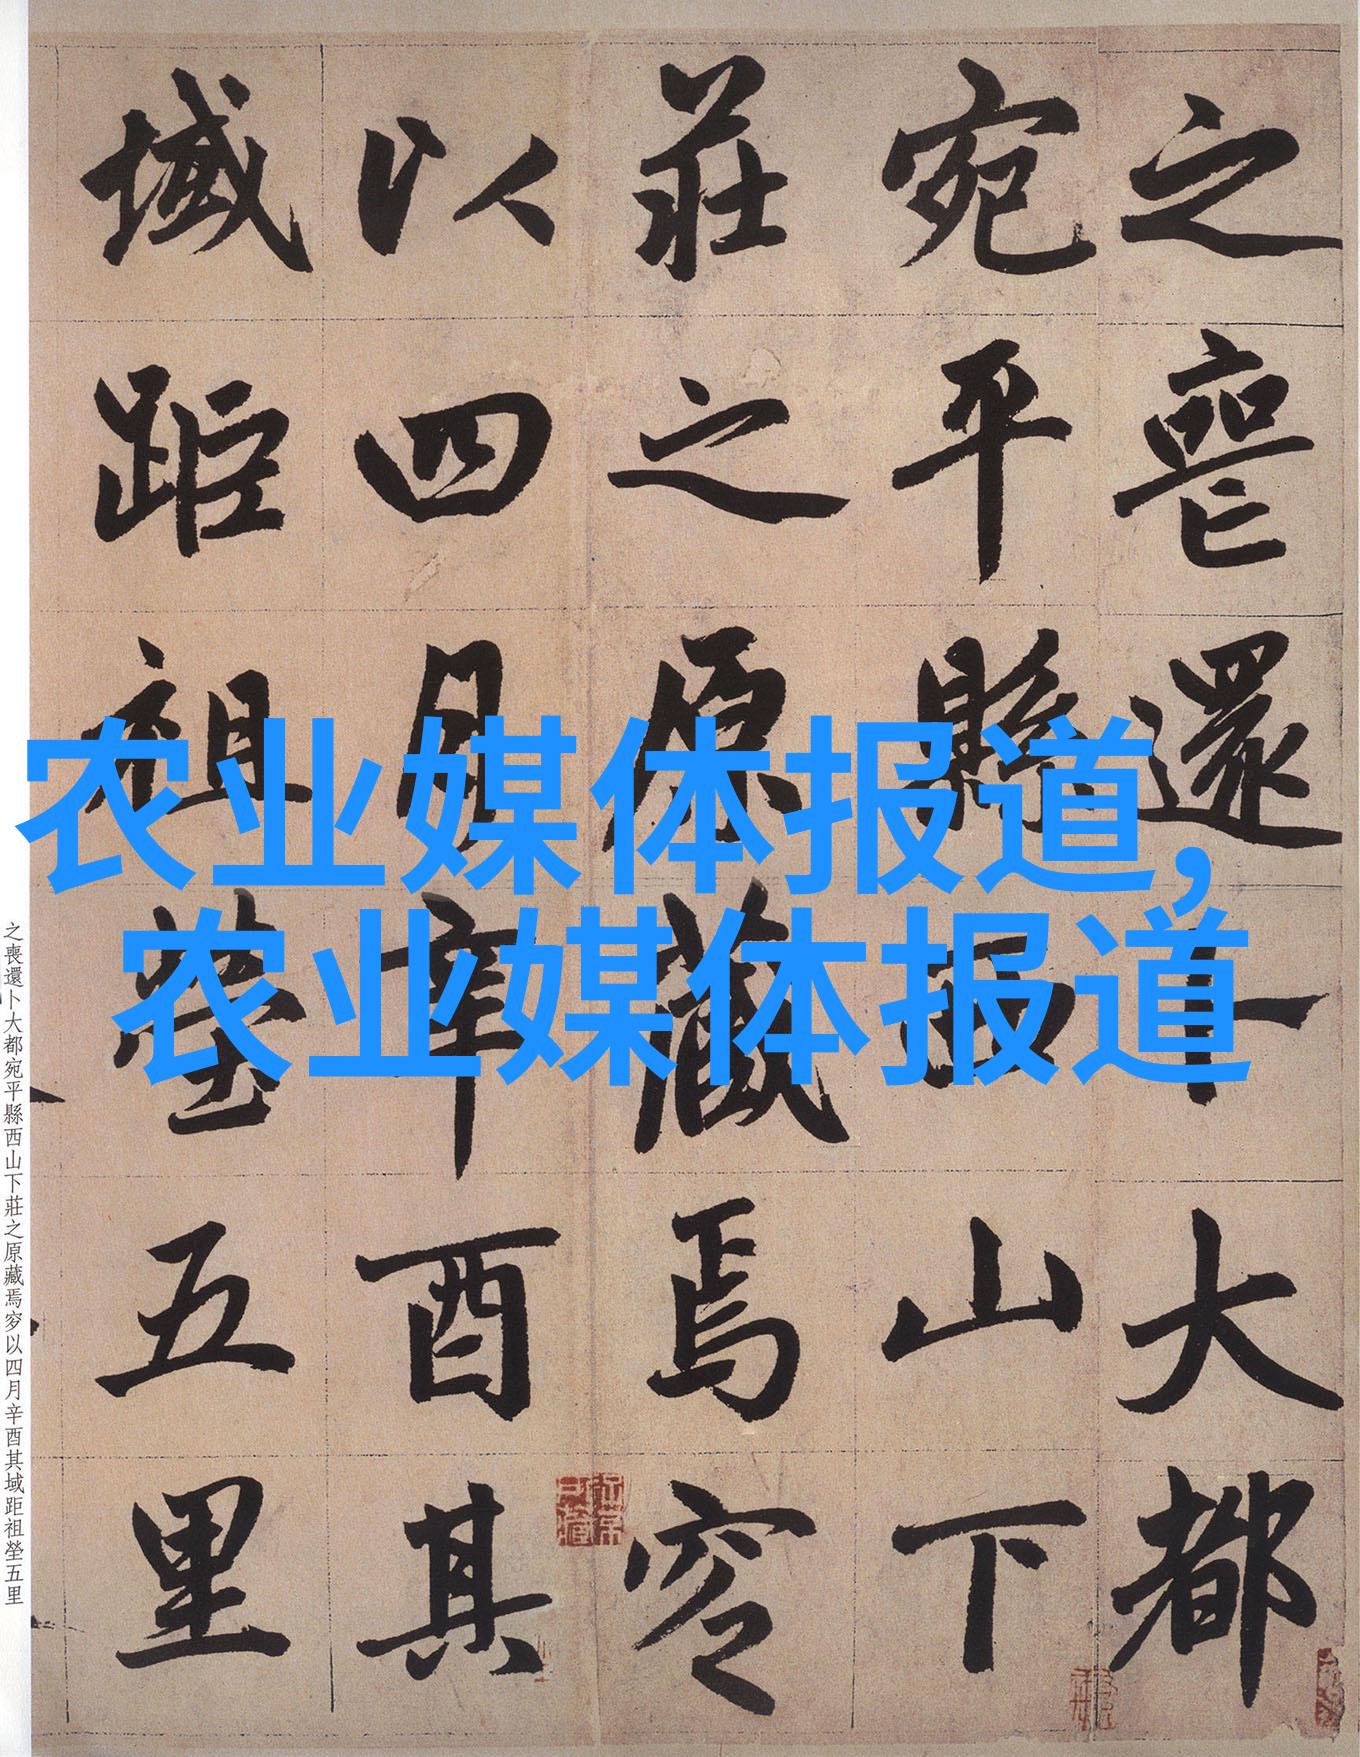 之喪還卜大都
宛平縣西山下
莊之原藏焉穸
以四月辛酉其
域距祖塋五里
农业媒体报道,
农业媒体报道
之喪還卜大都宛平縣西山下莊之原藏焉穸以四月辛酉其域距祖塋五里